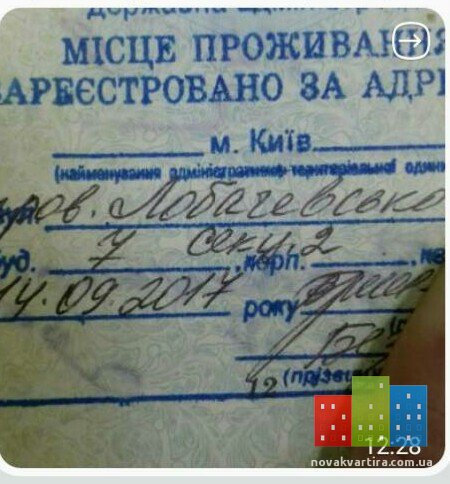 МІСЦЕ ПРОЖИВАННЯ
ЗАРЕЄСТРОВАНО ЗА АДРЕ
м. Київ
(найменування адміністративно-територіальної одини
пров. Лобачевсько
буд. 7 секц. 2, корп.
14.09.2017 року
(прізви
12
12:28
novakvartira.com.ua